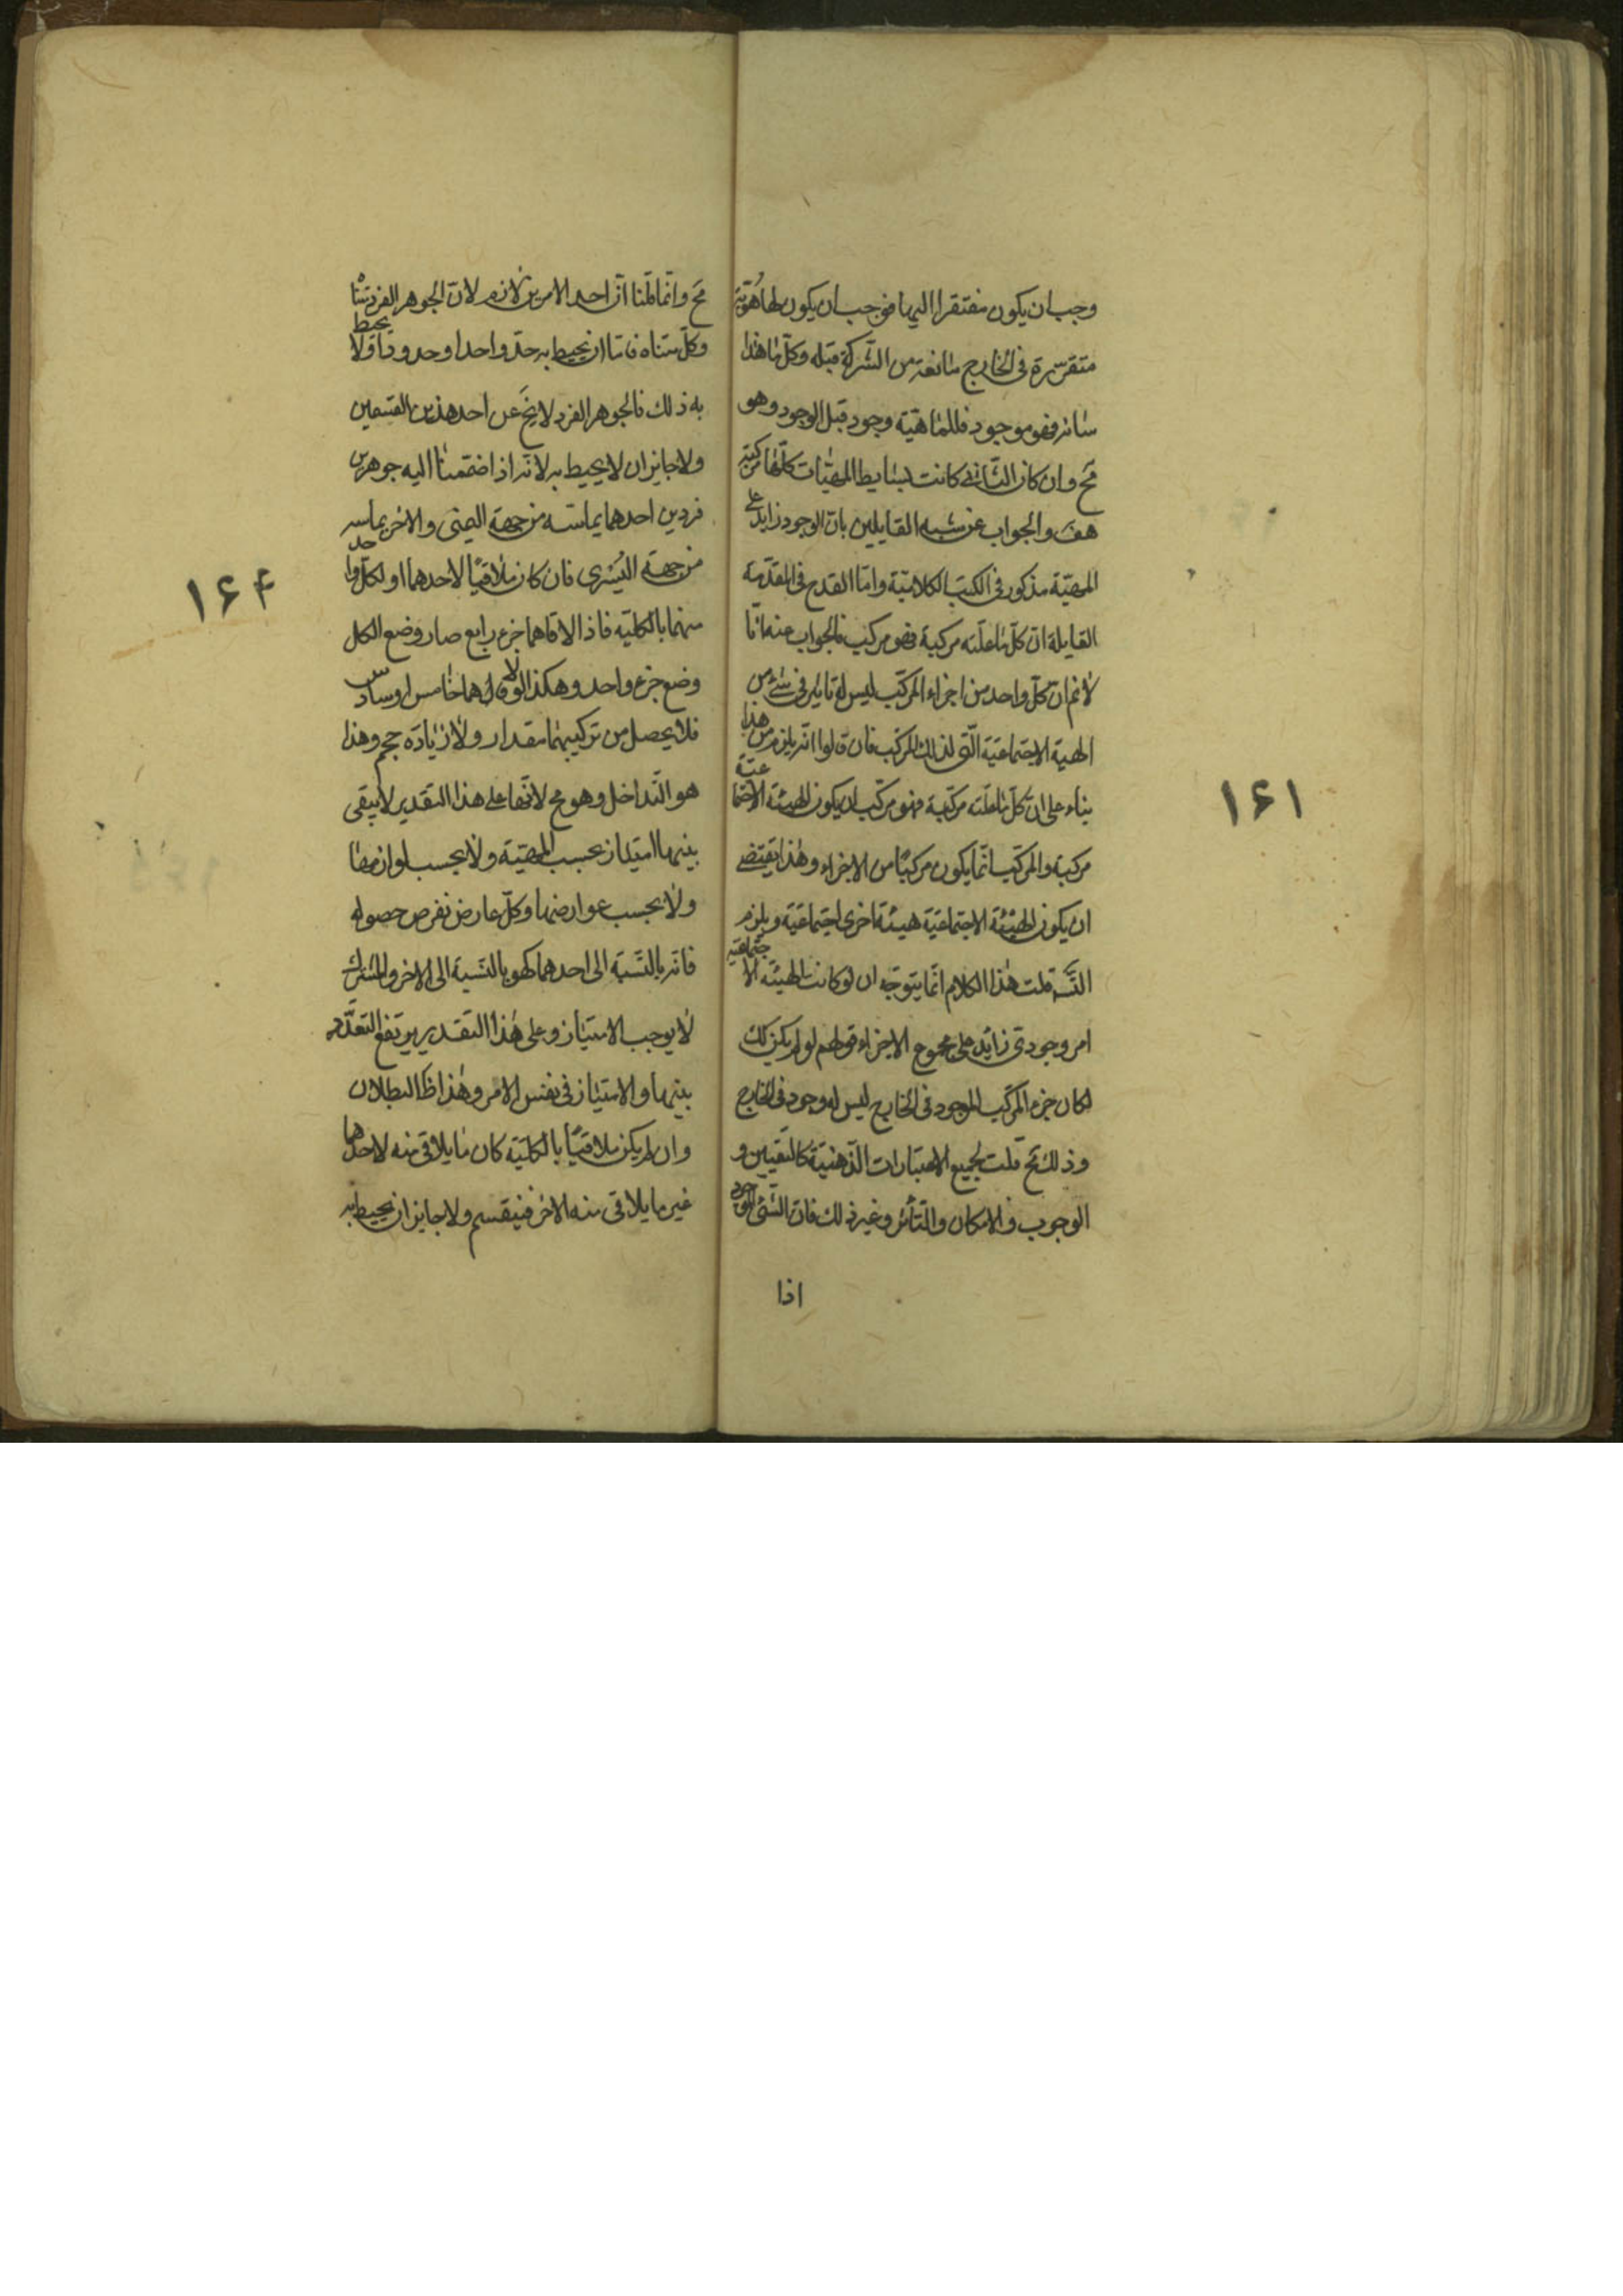 وجب ان يكون مفتقرا اليها فوجب ان يكون لها هُويّة
متقررة فى الخارج مانعة من الشركة قبله وكلّ ما هذا
شانه فهو موجود فللماهيّة وجود قبل الوجود وهو
مَح وان كان الثّانى كانت بسايط المهيّات كلّها مركبة
هفَ والجواب عن شبه القايلين بانّ الوجود زايد على
المهيّة مذكور فى الكتب الكلاميّة وامّا القدح فى المقدّمة
القايلة انّ كلّ ما علّته مركبة فهو مركب فالجواب عنه انّا
لانم انّ كلّ واحد من اجزاء المركّب ليس له تاثير فى شئ من
الهيئة الاجتماعيّة الّتى لذلك المركّب فان قالوا انّه يلزم من هذا
بناء على انّ كلّ ما علّته مركّبة فهو مركّب ان يكون الهيئة الاجتماعيّة
مركبة والمركّب انّما يكون مركبًا من الاجزاء وهذا يقتضى
ان يكون للهيئة الاجتماعيّة هيئة اخرى اجتماعيّة ويلزم
التَّسَ قلت هذا الكلام انّما يتوجّه ان لو كانت الهيئة الاجتماعيّة
امر وجودىّ زايد على مجموع الاجزاء قولهم لو لم يكن كك
لكان جزء المركّب الموجود فى الخارج ليس له وجود فى الخارج
وذلك مَح قلت لجميع الاعتبارات الذّهنيّة كالتّعيّن و
الوجوب والامكان والتّأثر وغير ذلك فانّ الشّئ الموجود
اذا
۱۶۱
مَح وانّما قلنا انّ احد الامرين لازم لانّ الجوهر الفرد متناه
وكلّ متناه فامّا ان يحيط به حدّ واحد او حدود او لا يحيط
به ذلك فالجوهر الفرد لايخَ عن احد هذين القسمين
ولا جايز ان لا يحيط به لانّه اذا ضممنا اليه جوهرين
فردين احدهما يماسّه من جهة اليمنى والاخر يماسه
من جهة اليُسرى فان كان ملاقيًا لاحدهما او لكلّ واحد
منهما بالكليّة فاذا لاقاهما جزء رابع صار وضع الكل
وضع جزء واحد وهكذا لو لاقاهما خامس او سادس
فلا يحصل من تركيبهما مقدار ولا زيادة حجم وهذا
هو التّداخل وهو مح لانّهما على هذا التقدير لا يبقى
بينهما امتياز بحسب المهيّة ولا بحسب لوازمها
ولا بحسب عوارضها وكلّ عارض نفرض حصوله
فانّه بالنّسبة الى احدهما كهو بالنّسبة الى الاخر والمشترك
لا يوجب الامتياز وعلى هذا التقدير يرتفع التعدّد
بينهما والامتياز فى نفس الامر وهذا ظَ البطلان
وان لم يكن ملاقيًا بالكليّة كان ما يلاقى منه لاحدهما
غير ما يلاقى منه الاخر فينقسم ولا جايز ان يحيط به
۱۶۴